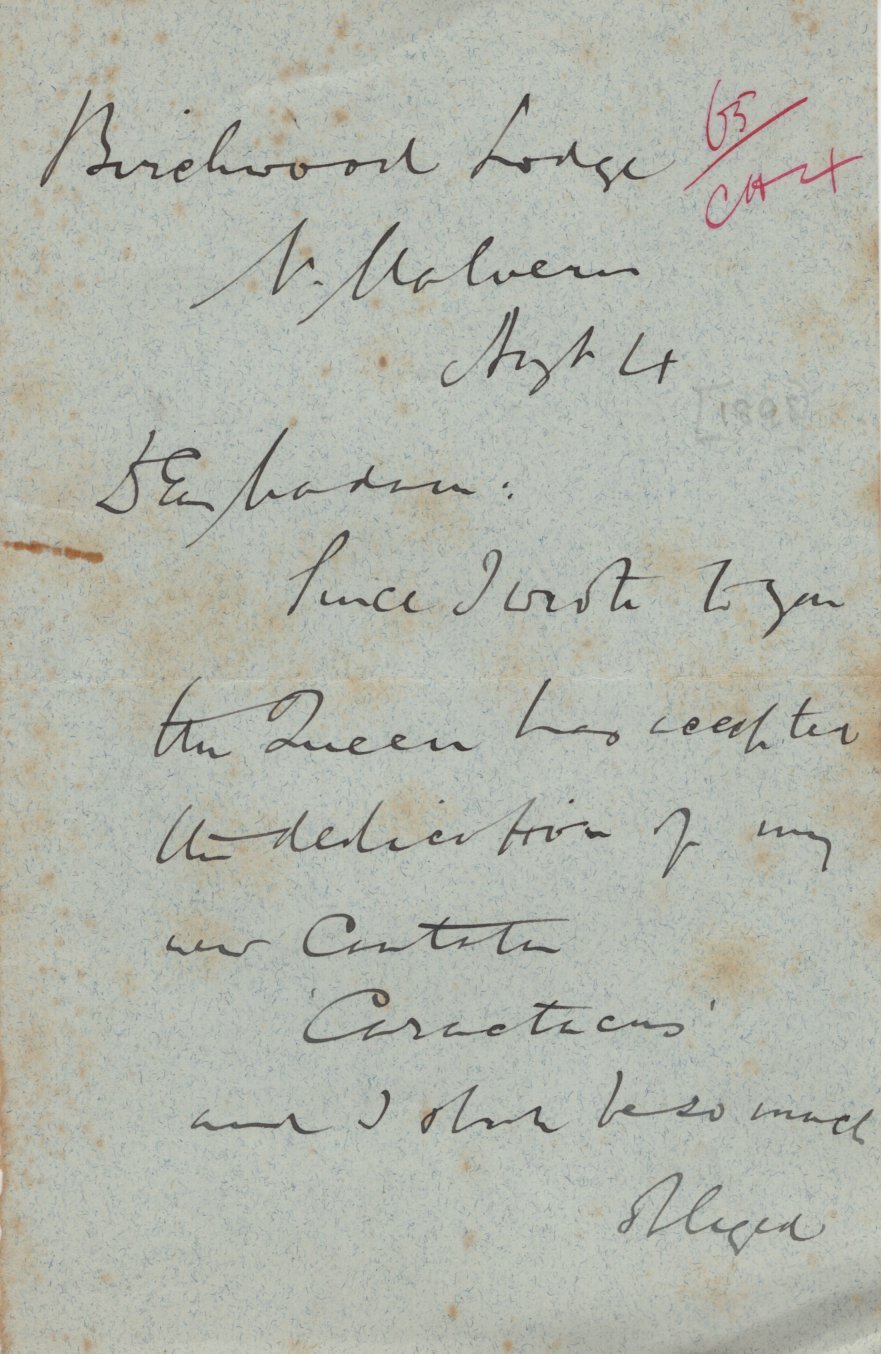 Birchwood Lodge
65
CH
N. Malvern
Augt 4
[1898]
Dear Madam:
Since I wrote to you
the Queen has accepted
the dedication of my
new Cantata
'Caractacus'
and I shd be so much
obliged